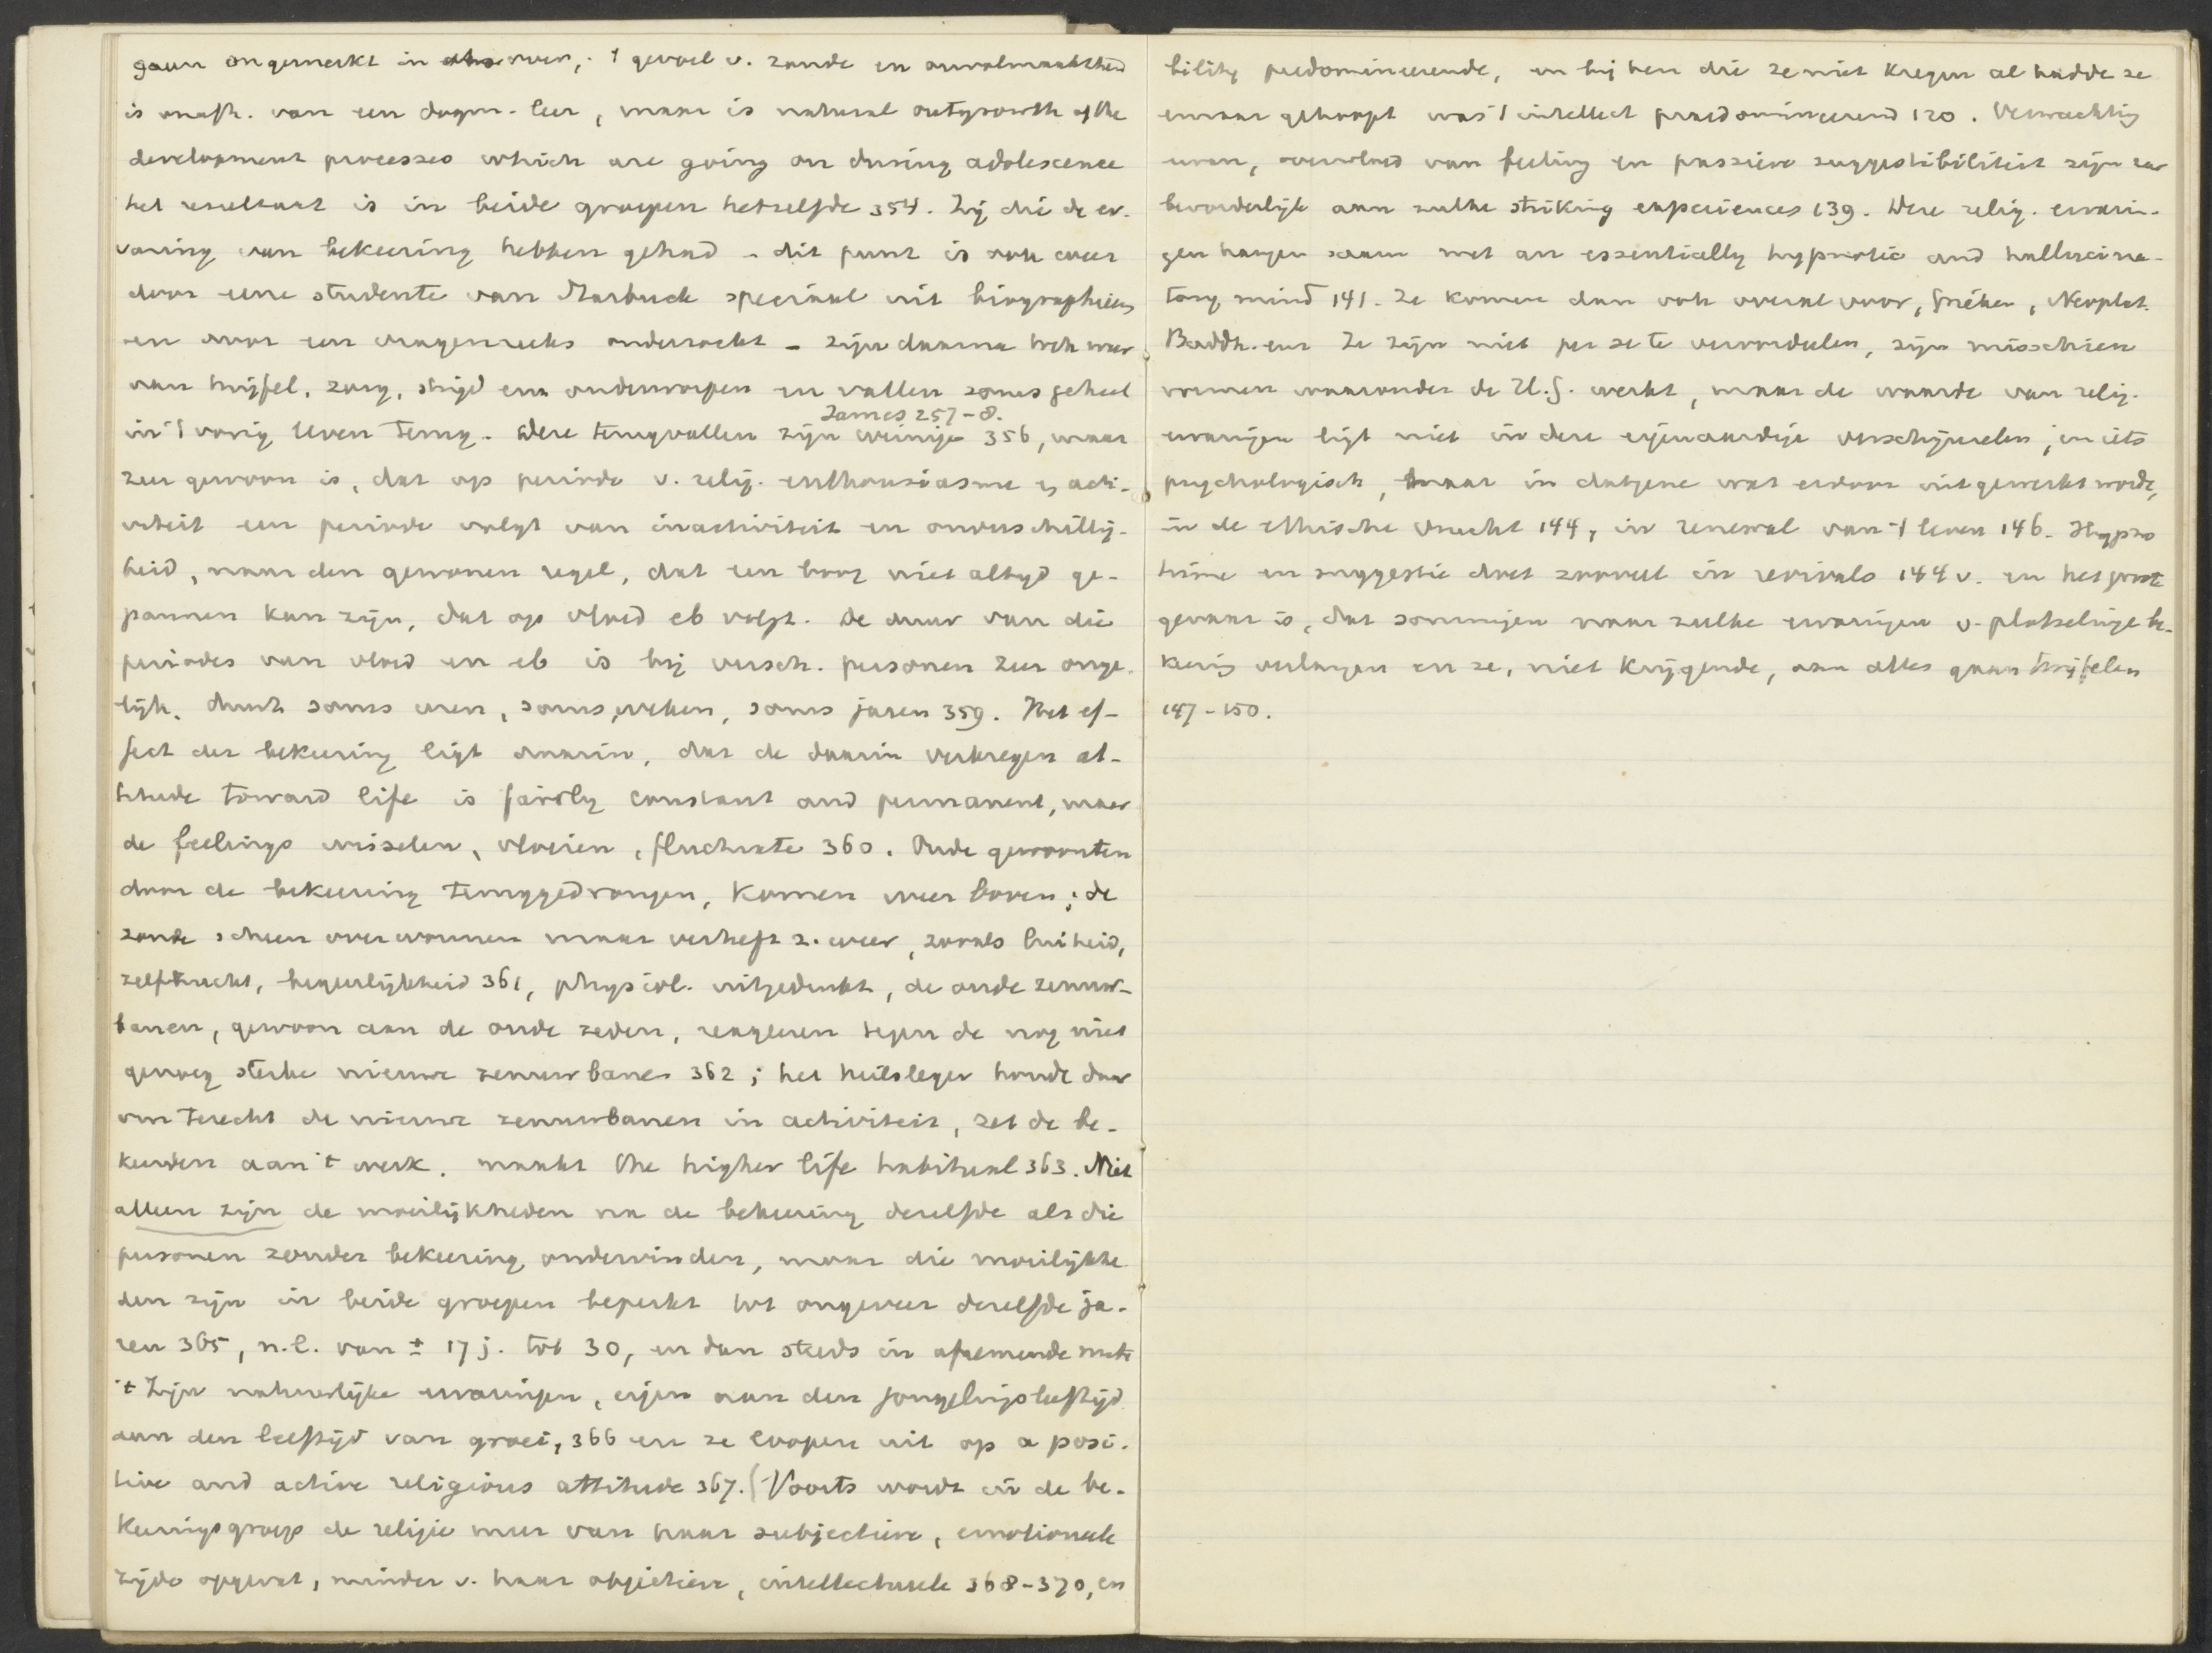 gaan ongemerkt in over, 't gevoel v. zonde en onvolmaaktheid
is onafh. van een dogm. leer, maar is natural outgrowth of the
development processes which are going on during adolescence
het resultaat is in beide groepen hetzelfde 354. Zij die de er-
varing van bekeering hebben gehad - dit punt is ook weer
door eene studente van Starbuck speciaal uit biographieen
en door een vragenreeks onderzocht - zijn daarna toch weer
van twijfel, zorg, strijd enz onderworpen en vallen soms geheel
James 257-8.
in 't vorig leven terug. Deze terugvallen zijn weinige 356, maar
zeer gewoon is, dat op periode v. relig. enthousiasme & acti-
viteit een periode volgt van inactiviteit en onverschillig-
heid, naar den gewonen regel, dat een boog niet altijd ge-
pannen kan zijn, dat op vloed eb volgt. De duur van die
periodes van vloed en eb is bij versch. personen zeer onge-
lijk, duurt soms uren, soms weken, soms jaren 359. Het ef-
fect der bekeering ligt daarin, dat de daarin verkregen at-
titude toward life is fairly constant and permanent, maar
de feelings wisselen, vloeien, fluctuate 360. Oude gewoonten
door de bekeering teruggedrongen, komen weer boven; de
zonde scheen overwonnen maar verheft z. weer, zooals luiheid,
zelfzucht, begeerlijkheid 361, physiol. uitgedrukt, de oude zenuw-
banen, gewoon aan de oude zeden, reageren tegen de nog niet
genoeg sterke nieuwe zenuwbanen 362; het heilsleger houdt daar
om terecht de nieuwe zenuwbanen in activiteit, zet de be-
keerden aan 't werk, maakt the higher life habitual 363. Niet
alleen zijn de moeilijkheden na de bekeering dezelfde als die
personen zonder bekeering ondervinden, maar die moeilijkhe
den zijn in beide groepen beperkt tot ongeveer dezelfde ja-
ren 365, n.l. van ± 17 j. tot 30, en dan steeds in afnemende mate
't Zijn natuurlijke ervaringen, eigen aan den jongelingsleeftijd
aan den leeftijd van groei, 366 en ze loopen uit op a posi-
tive and active religious attitude 367. (Voorts wordt in de be-
keeringsgroep de religie meer van haar subjectieve, emotioneele
zijde opgevat, minder v. haar objectieve, intellectueele 368-370, en
bility predomineerende, en bij hen die ze niet kregen al hadde ze
ernaar gehoopt was 't intellect praedomineerend 120. Verwachting
ervan, overvloed van feeling en passieve suggestibiliteit zijn zeer
bevorderlijk aan zulke striking experiences 139. Deze relig. ervarin-
gen hangen saam met an essentially hypnotic and hallucina-
tory mind 141. Ze komen dan ook overal voor, Grieken, Neoplat.
Buddh. enz Ze zijn niet per se te veroordeelen, zijn misschien
vormen waaronder de H.G. werkt, maar de waarde van relig.
ervaringen ligt niet in deze eigenaardige verschijnselen, in iets
psychologisch, maar in datgene wat erdoor uitgewerkt wordt,
in de ethische vrucht 144, in renewal van 't leven 146. Hypno
tisme en suggestie doet zooveel in revivals 144 v. en het groote
gevaar is, dat sommigen naar zulke ervaringen v. plotselinge be-
keering verlangen en ze, niet krijgende, aan alles gaan twijfelen
147-150.